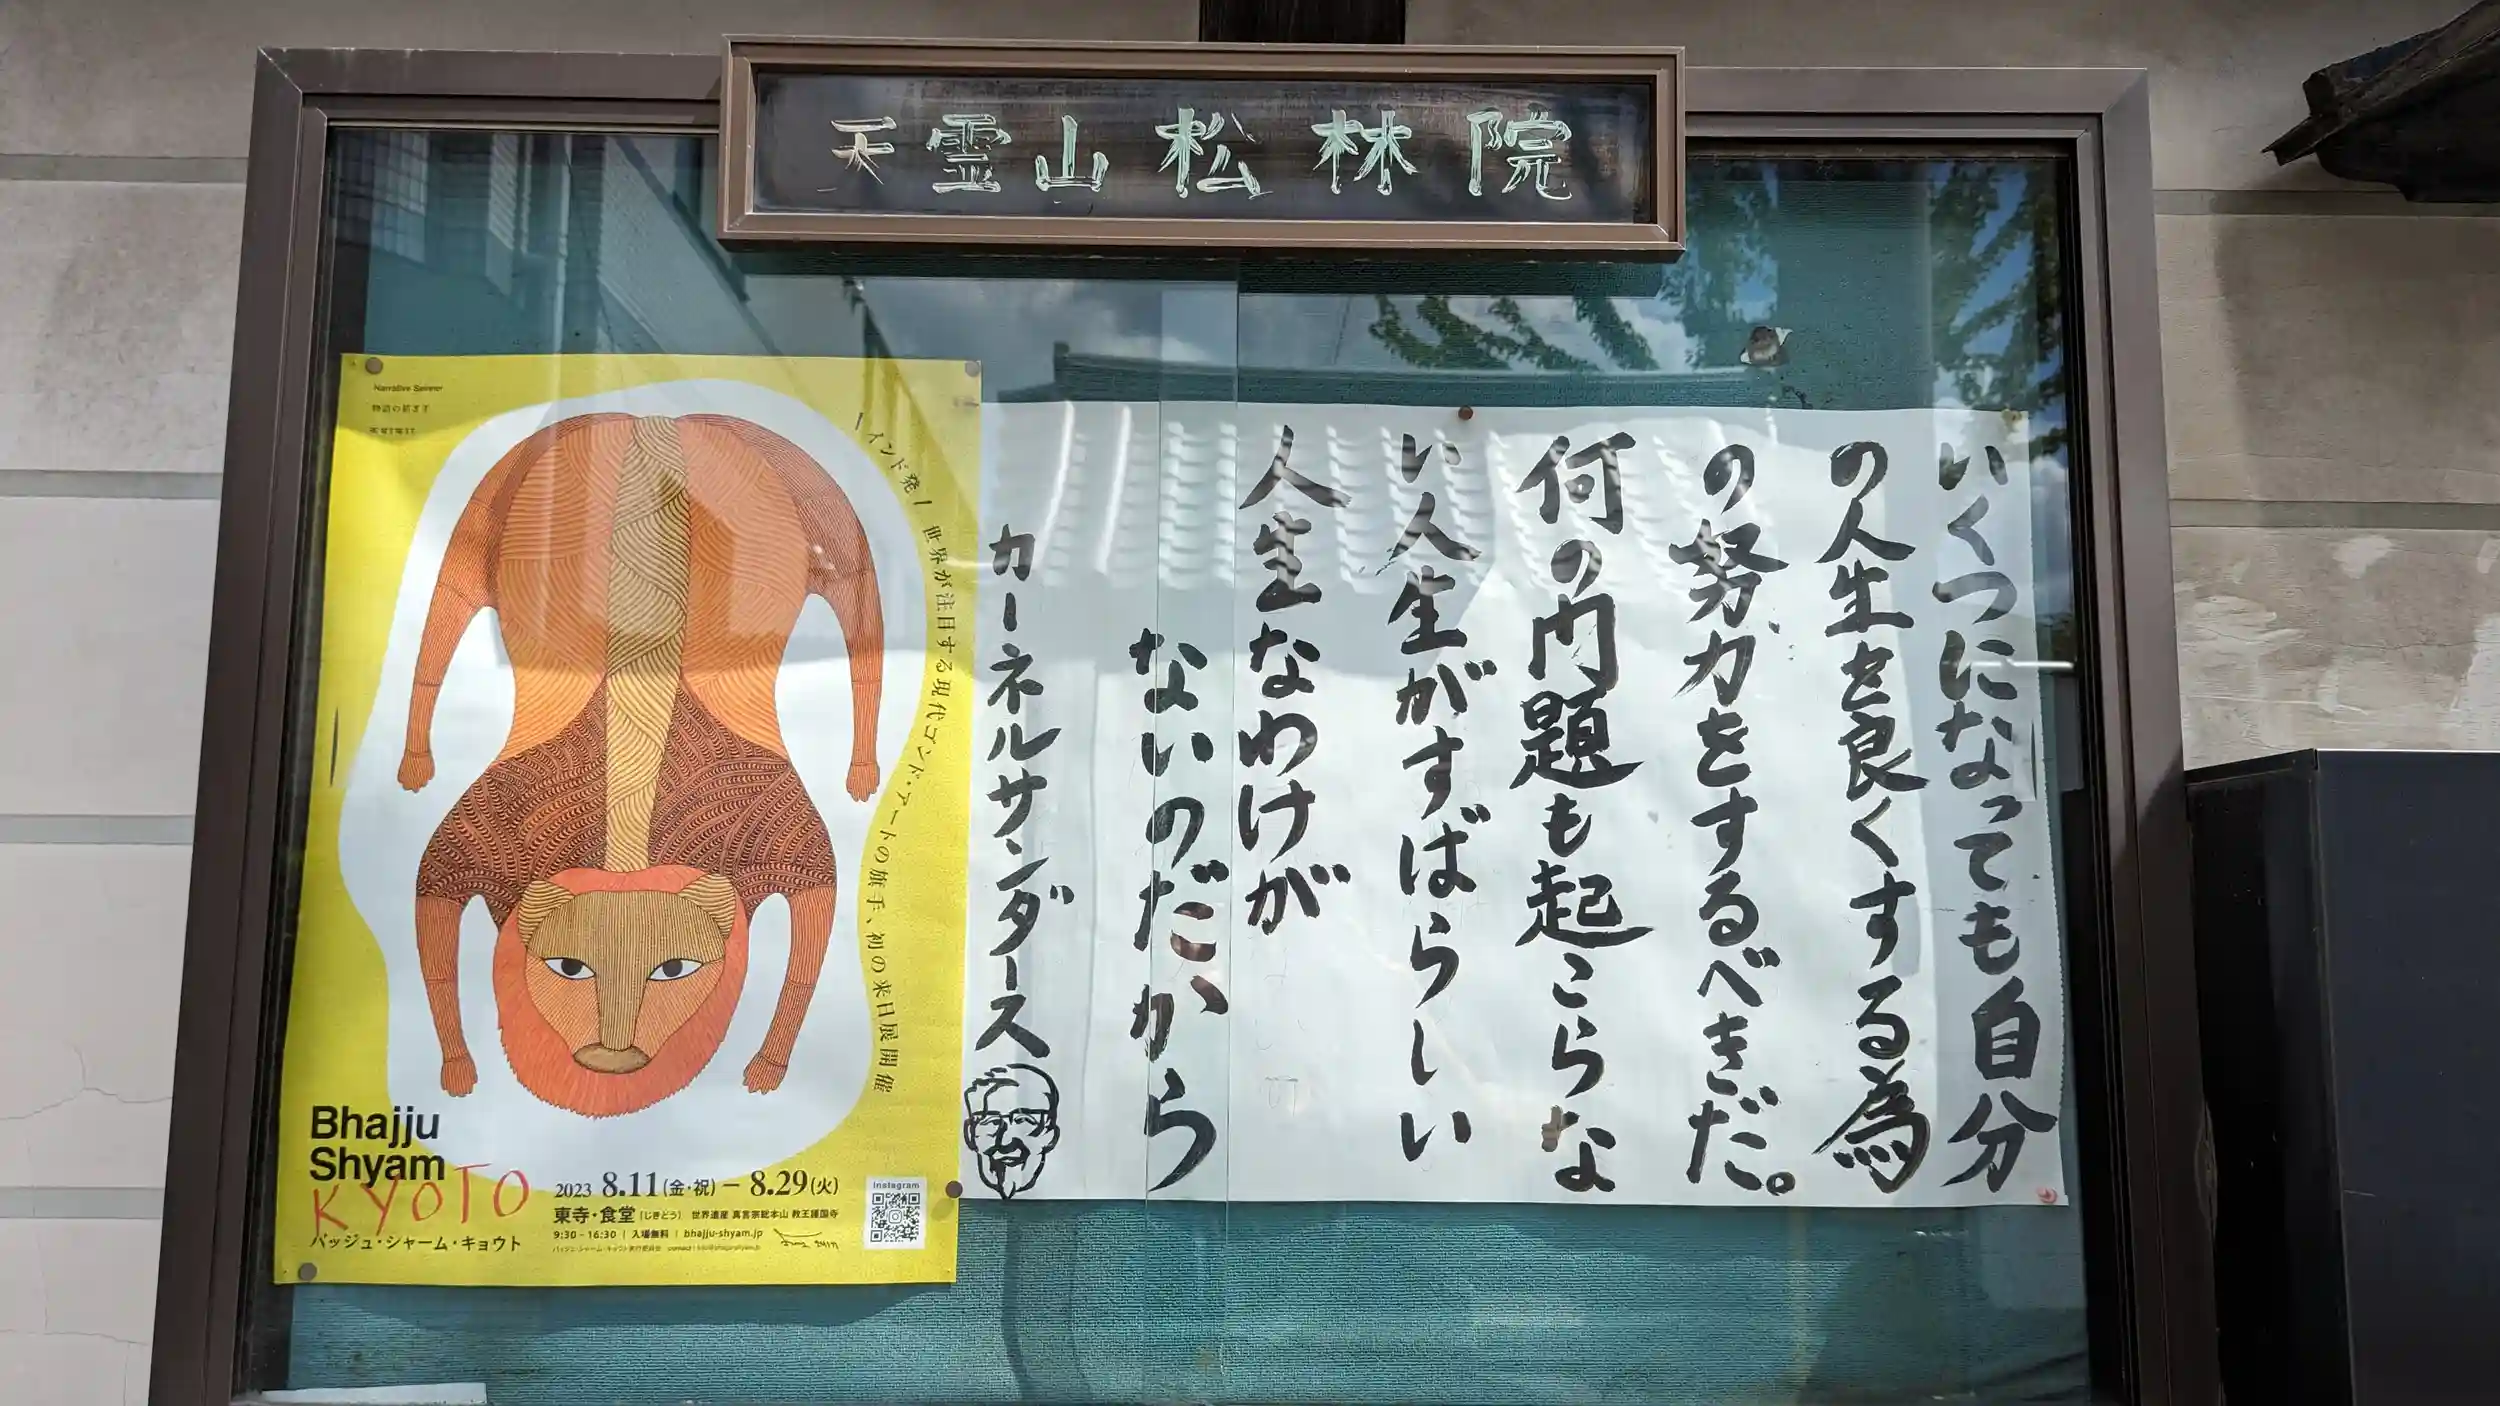 天霊山松林院
いくつになっても自分
の人生を良くする為
の努力をするべきだ。
何の問題も起こらな
い人生がすばらしい
人生なわけが
ないのだから
カーネルサンダース
Narrative Savior
―インド発― 世界が注目する現代ゴンド・アートの旗手、初の来日展開催
Bhajju
Shyam
KYOTO
バッジュ・シャーム・キョウト
2023 8.11(金・祝)ー8.29(火)
東寺・食堂(じきどう) 世界遺産 真言宗総本山 教王護国寺
9:30 - 16:30 | 入場無料 | bhajju-shyam.jp
Instagram